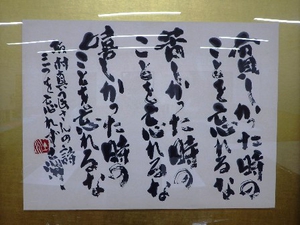 貧しかった時の
ことを忘れるな
苦しかった時の
ことをも忘れるな
嬉しかった時の
ことを忘れるな
真民さんの詩
三つを忘れず